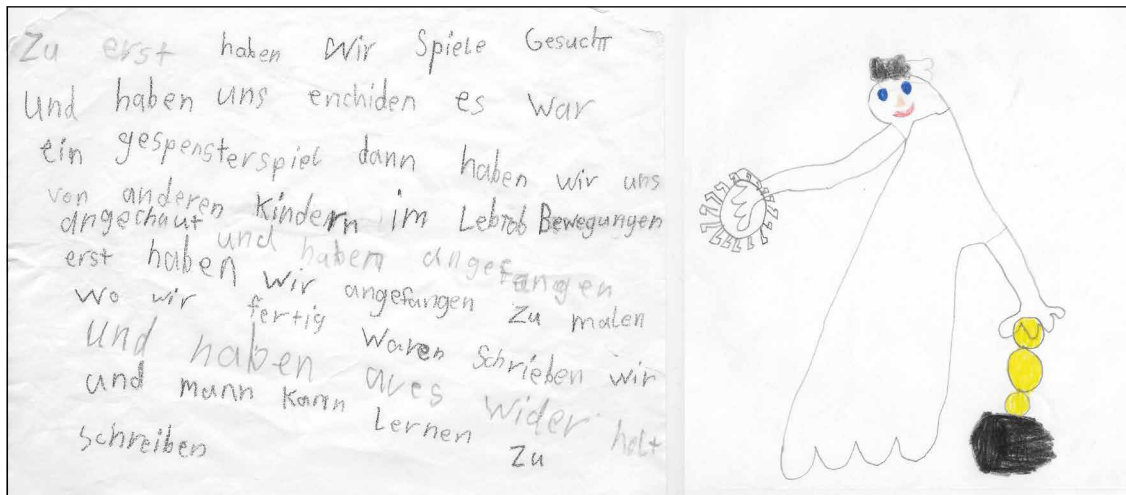 Zu erst haben Wir Spiele Gesucht
Und haben uns enchiden es war
ein gespensterspiel dann haben wir uns
von anderen Kindern im Lebtob Bewegungen
angechaut und haben angefangen
erst haben wir angefangen Zu malen
wo wir fertig waren Schrieben wir
und haben aves wider holt
und mann kann Lernen Zu
schreiben